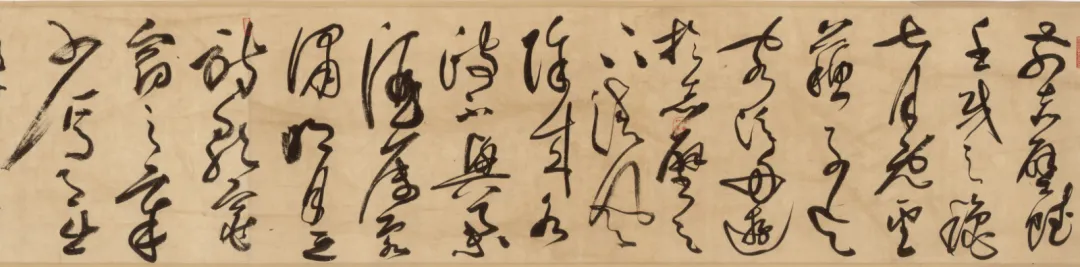 前赤壁賦
壬戌之秋
七月既望
蘇子與
客泛舟遊
於赤壁之
下清風
徐來水
波不興舉
酒屬客
誦明月之
詩歌窈
窕之章
少焉月出